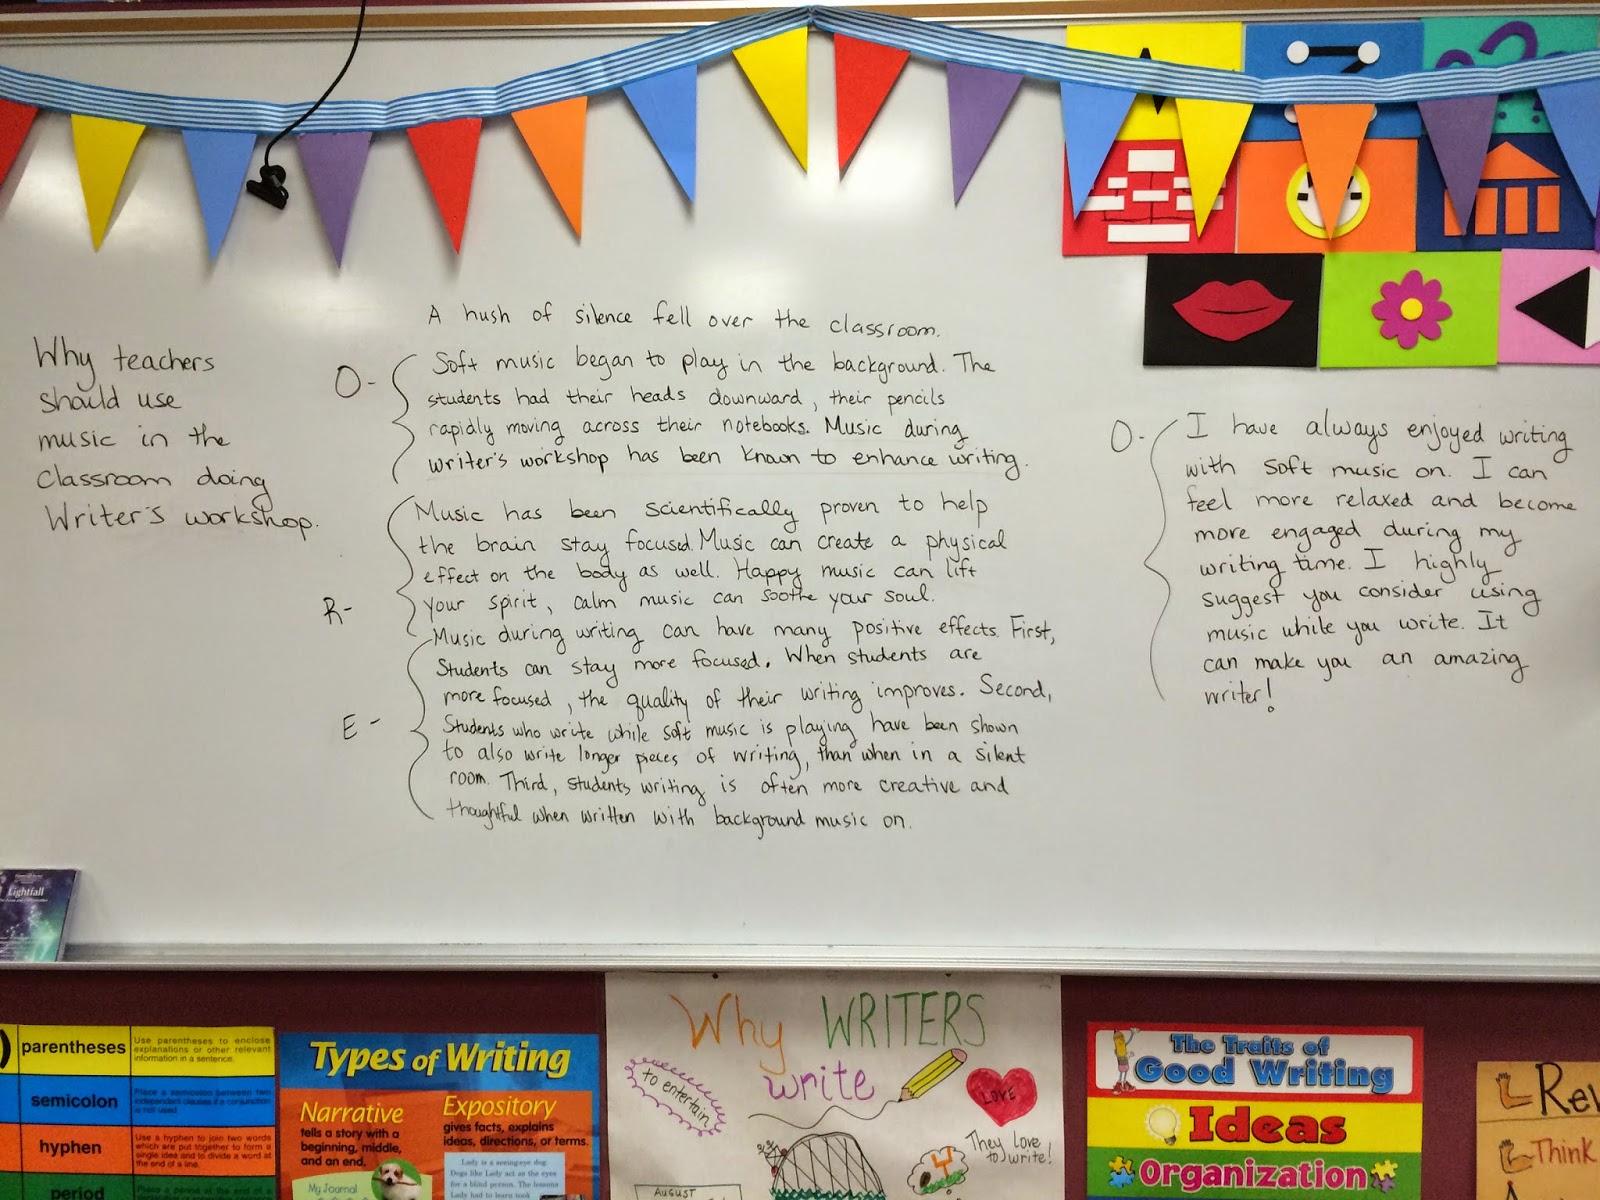 Why teachers
should use
music in the
Classroom doing
Writer's workshop.
A hush of silence fell over the classroom.
O-
Soft music began to play in the background. The
students had their heads downward, their pencils
rapidly moving across their notebooks. Music during
writer's workshop has been known to enhance writing.
R-
Music has been scientifically proven to help
the brain stay focused. Music can create a physical
effect on the body as well. Happy music can lift
your spirit, calm music can soothe your soul.
E-
Music during writing can have many positive effects. First,
Students can stay more focused. When students are
more focused, the quality of their writing improves. Second,
Students who write while soft music is playing have been shown
to also write longer pieces of writing, than when in a silent
room. Third, students writing is often more creative and
thoughtful when written with background music on.
O-
I have always enjoyed writing
with soft music on. I can
feel more relaxed and become
more engaged during my
writing time. I highly
suggest you consider using
music while you write. It
can make you an amazing
writer!
Lightfall
)
parentheses
Use parentheses to enclose
explanations or other relevant
information in a sentence.
semicolon
Place a semicolon between two
independent clauses if a conjunction
is not used.
hyphen
Use a hyphen to join two words
which are put together to form a
single idea and to divide a word at
the end of a line.
period
Types of Writing
Narrative
tells a story with a
beginning, middle,
and an end.
My Journal
Expository
gives facts, explains
ideas, directions, or terms.
Lady is a seeing-eye dog.
Dogs like Lady act as the eyes
for a blind person. The lessons
Lady had to learn took
Why WRITERS
write
to entertain
LOVE
They love
to write!
AUGUST
The Traits of
Good Writing
Ideas
Organization
Rev
Think